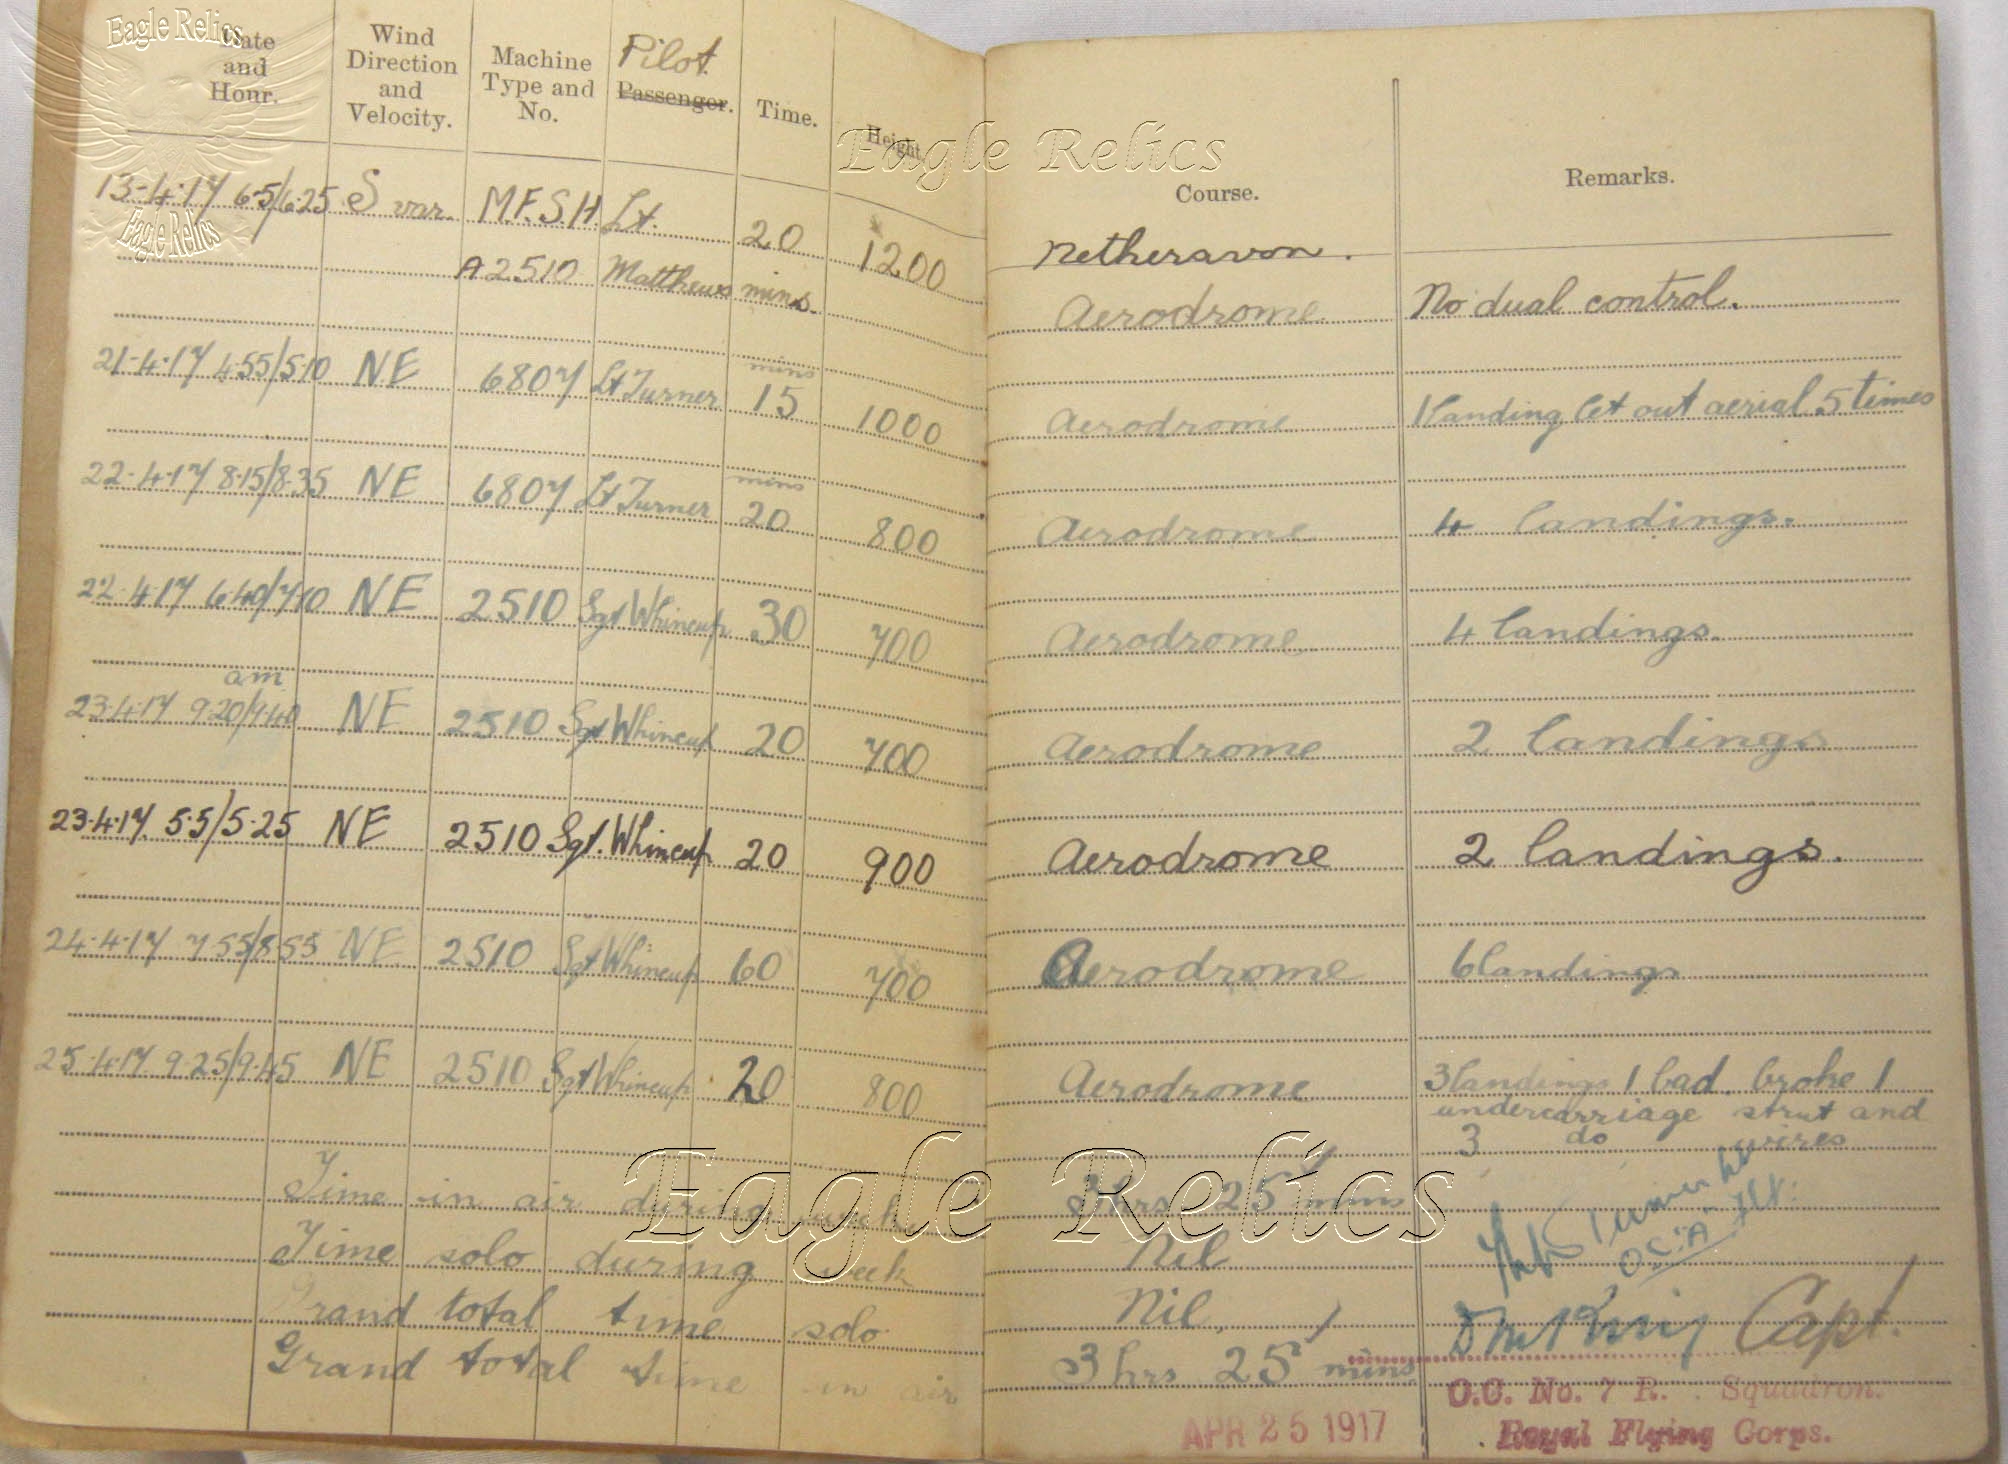 Eagle Relics
Date and Hour. Wind Direction and Velocity. Machine Type and No. Pilot Passenger. Time. Height Course. Remarks.
Eagle Relics
Netheravon.
13-4-17 6·5/6·25 S var. M.F.S.H Lt. 20 1200 Aerodrome No dual control.
Eagle Relics
A2510 Matthews mins.
21-4-17 4·55/5·10 NE 6807 Lt Turner mins 15 1000 Aerodrome 1 landing, let out aerial 5 times
22-4-17 8·15/8·35 NE 6807 Lt Turner mins 20 800 Aerodrome 4 landings.
22·4·17 6·40/7·10 NE 2510 Sgt Whincup 30 700 Aerodrome 4 landings.
23·4·17 am 9·20/9·40 NE 2510 Sgt Whincup 20 700 Aerodrome 2 landings
23·4·17 5·5/5·25 NE 2510 Sgt. Whincup 20 900 Aerodrome 2 landings.
24·4·17 7·55/8·55 NE 2510 Sgt Whincup 60 700 Aerodrome 6 landings
25·4·17 9·25/9·45 NE 2510 Sgt Whincup 20 800 Aerodrome 3 landings 1 bad. broke 1
undercarriage strut and
3 do wires
Eagle Relics
Time in air during week 3 hrs 25 mins
Time solo during week Nil
O.C. "A" Flt.
Grand total time solo Nil.
Capt.
Grand total time in air 3 hrs 25 mins
O.C. No. 7 R. Squadron.
APR 25 1917
Royal Flying Corps.